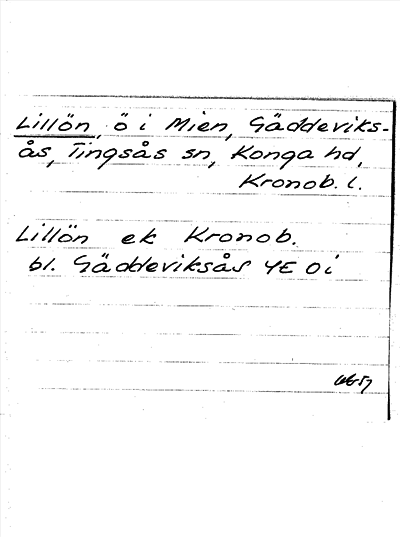 Lillön, ö i Mien, Gäddeviks-
ås, Tingsås sn, Konga hd,
Kronob. l.
Lillön ek Kronob.
bl. Gäddeviksås 4E 0i